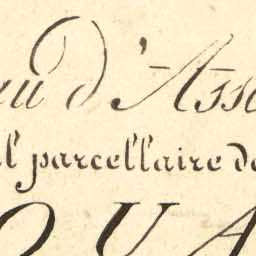 eu d'Asse
l parcellaire de
QUA